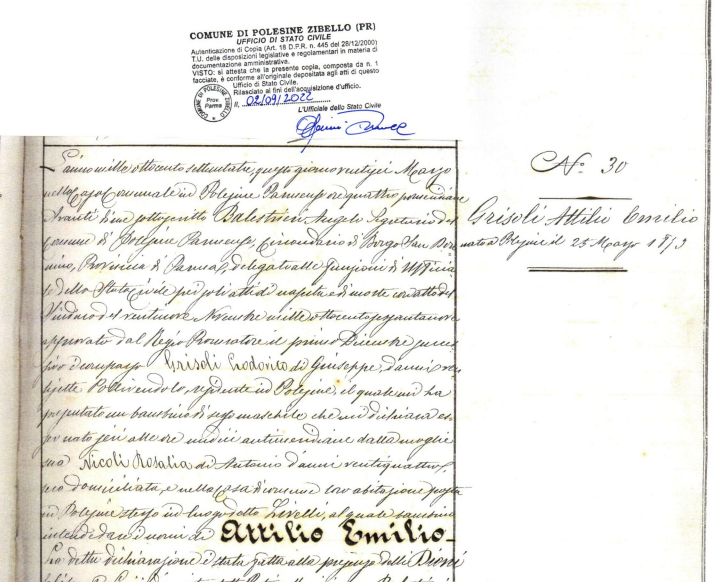 COMUNE DI POLESINE ZIBELLO (PR)
UFFICIO DI STATO CIVILE
Autenticazione di Copia (Art. 18 D.P.R. n. 445 del 28/12/2000)
T.U. delle disposizioni legislative e regolamentari in materia di
documentazione amministrativa.
VISTO: si attesta che la presente copia, composta da n. 1
facciate, è conforme all'originale depositata agli atti di questo
Ufficio di Stato Civile.
Rilasciato ai fini dell'acquisizione d'ufficio.
COMUNE DI POLESINE ZIBELLO
Prov. Parma
lì, 02/09/2022
L'Ufficiale dello Stato Civile
L'anno mille ottocento settantatre, questo giorno ventisei Marzo
nella Casa Comunale in Polesine Parmense ore quattro pomeridiane
Avanti di me sottoscritto Balestrieri Angelo Segretario del
Comune di Polesine Parmense, Circondario di Borgo San Don
nino, Provincia di Parma, delegato alle funzioni di Uffizia
le dello Stato Civile per soli atti di nascita e di morte con atto del
Sindaco del ventinove Novembre mille ottocento sessantanove
approvato dal Regio Procuratore il primo Dicembre succes
sivo è comparso Grisoli Lodovico di Giuseppe, d'anni ven
residente in Polesine, il quale mi ha
presentato un bambino di sesso maschile che mi dichiara es
ser nato jeri alle ore undici antimeridiane dalla moglie
sua Nicoli Rosalia di Antonio d'anni ventiquattro,
seco domiciliata, e nella Casa di comune loro abitazione posta
in Polesine stesso in luogo detto Livelli, al quale bambino
intende dare i nomi di Attilio Emilio-
La detta dichiarazione è stata fatta alla presenza delli Dioni
N.o 30
Grisoli Attilio Emilio
nato a Polesine il 25 Marzo 1873